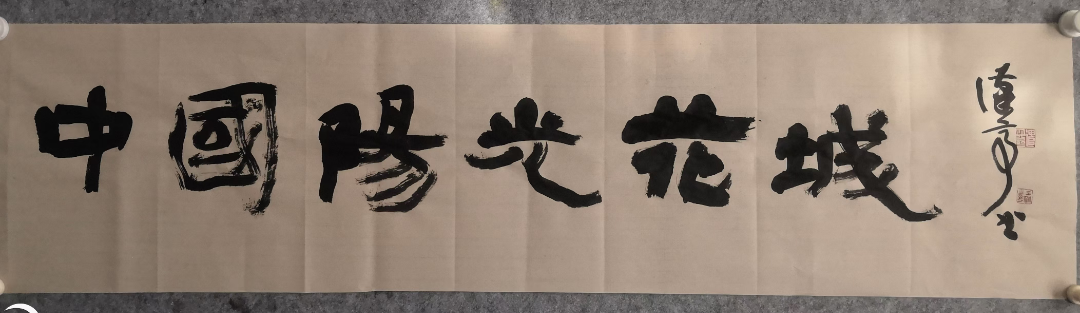 中國陽光花城